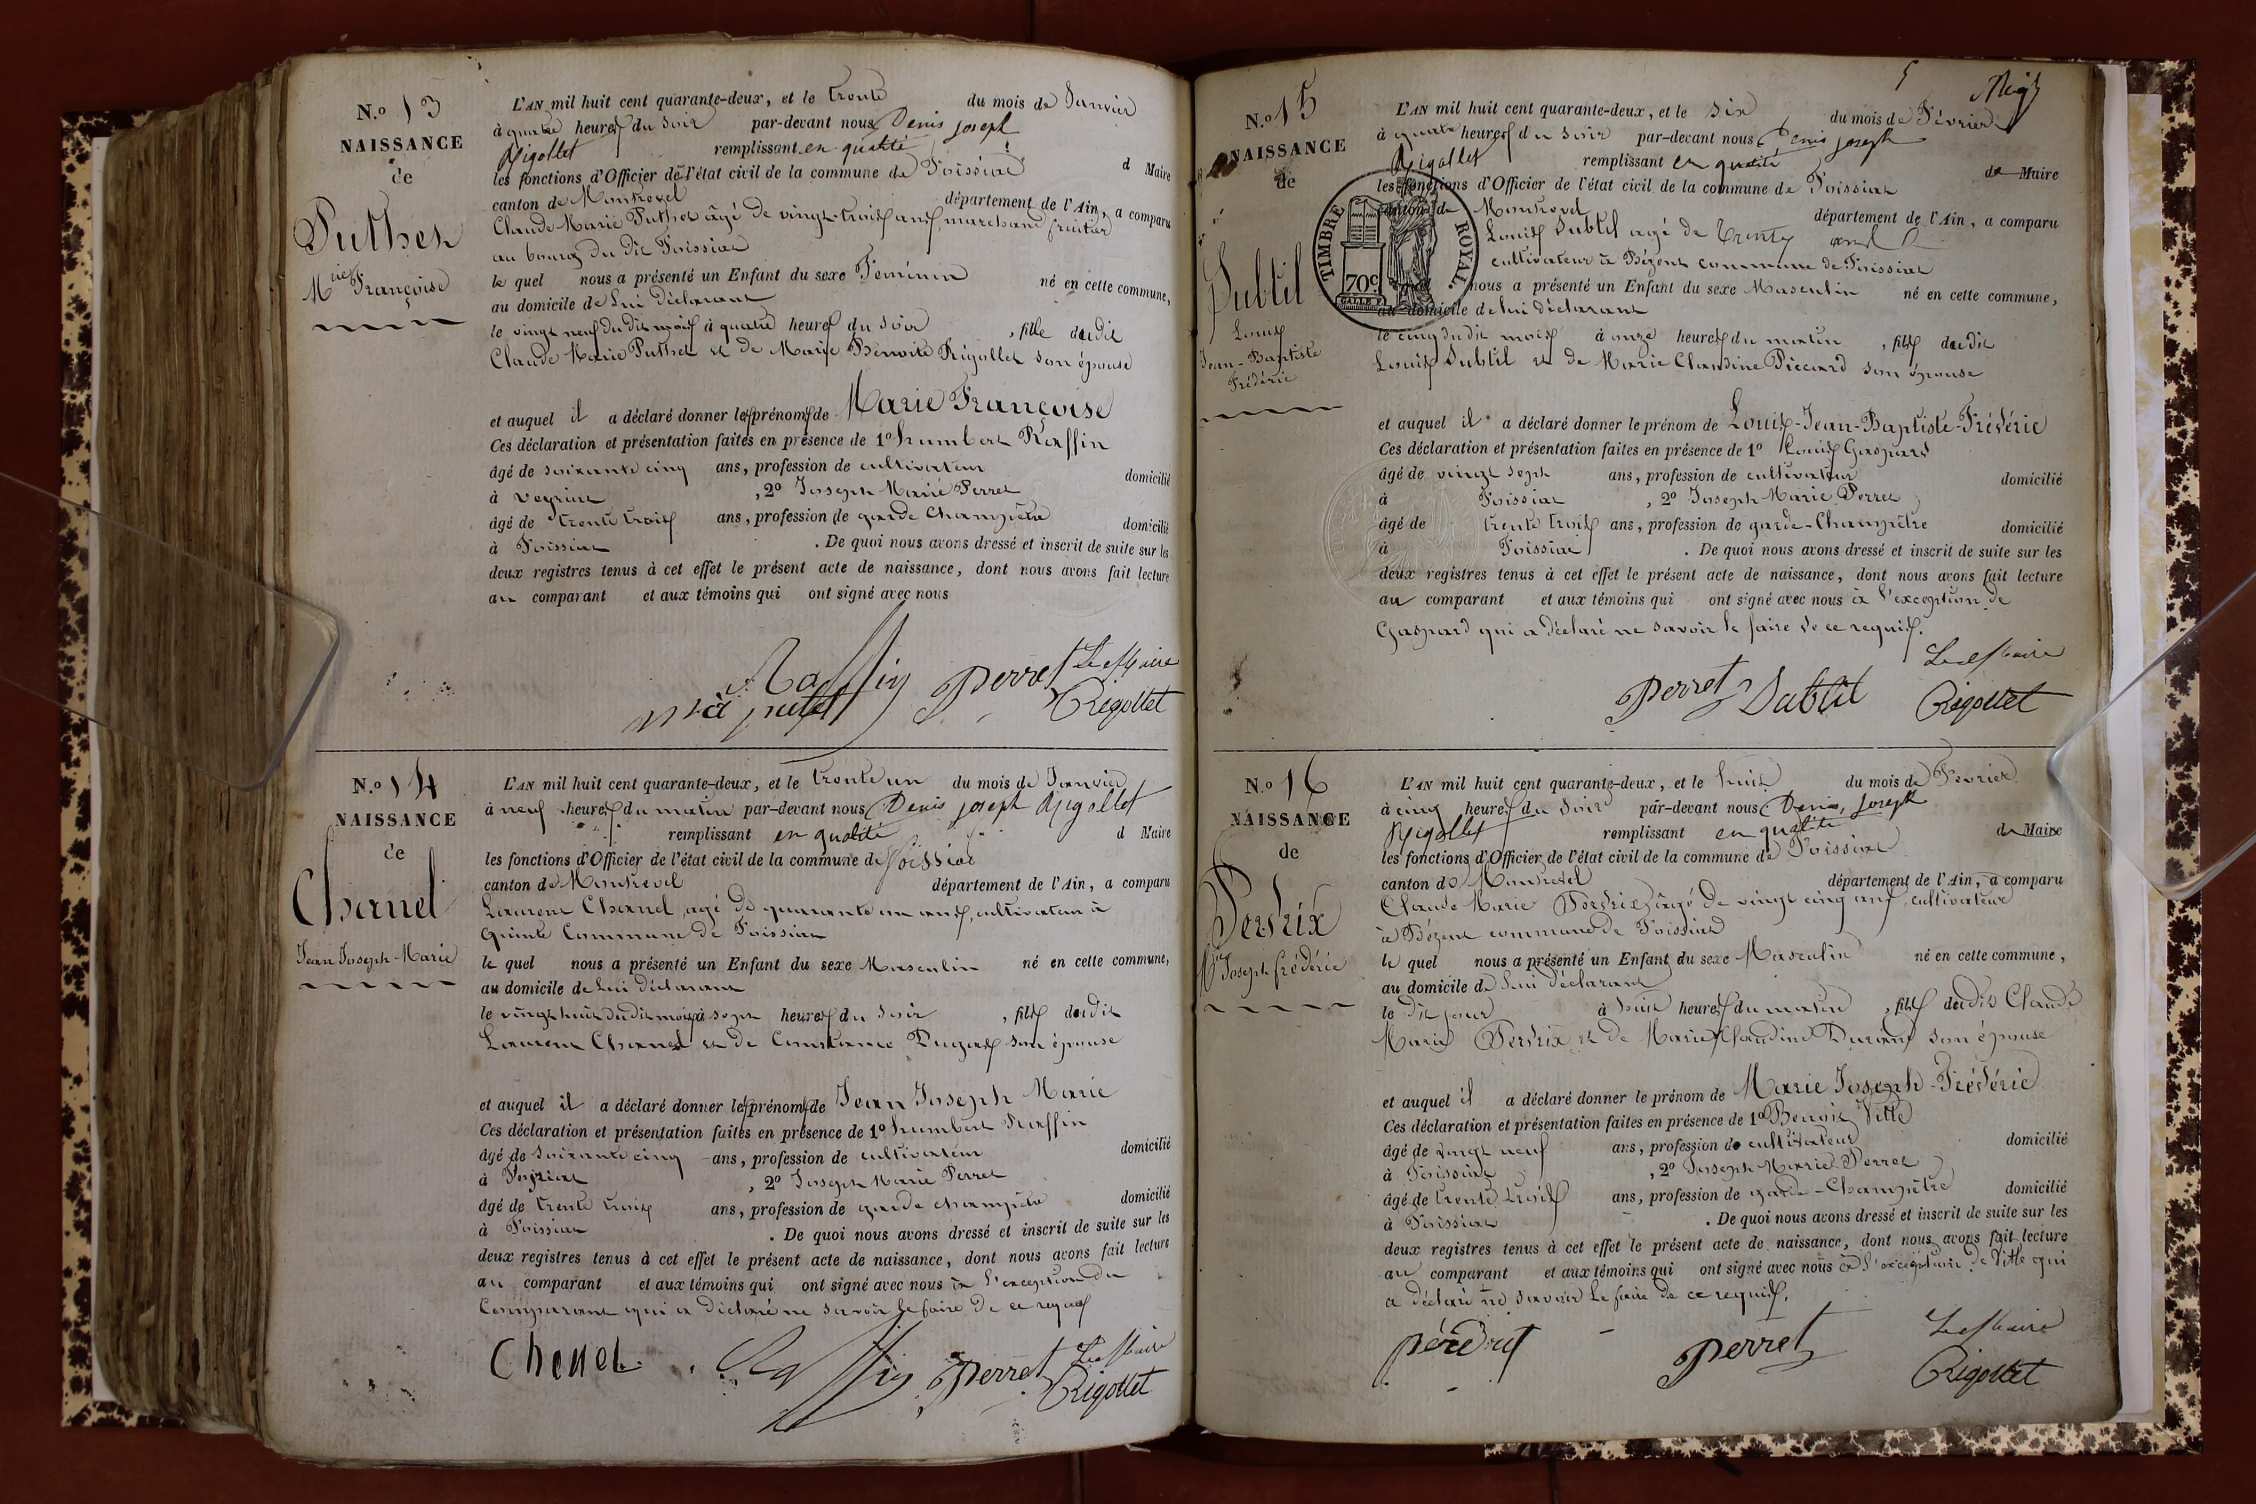 N.o 13
NAISSANCE
de
Puthet
Mie Françoise
L'AN mil huit cent quarante-deux, et le trente du mois de Janvier
à quatre heures du soir par-devant nous Denis joseph
Rigollet remplissant en qualité d Maire
les fonctions d'Officier de l'état civil de la commune de Foissiat
canton de Montrevel département de l'Ain, a comparu
Claude Marie Puthet âgé de vingt-trois ans, marchand fruitier
au bourg du dit Foissiat
le quel nous a présenté un Enfant du sexe Féminin né en cette commune,
au domicile de Lui Déclarant
le vingt neuf du dit mois à quatre heures du soir , fille dudit
Claude Marie Puthet et de Marie Benoite Rigollet son épouse
et auquel il a déclaré donner les prénoms de Marie Françoise
Ces déclaration et présentation faites en présence de 1o humbert Raffin
âgé de soixante cinq ans, profession de cultivateur domicilié
à , 2o Joseph Marie Perret
âgé de trente trois ans, profession de garde champêtre domicilié
à Foissiat . De quoi nous avons dressé et inscrit de suite sur les
deux registres tenus à cet effet le présent acte de naissance, dont nous avons fait lecture
au comparant et aux témoins qui ont signé avec nous
Raffin Perret Le Maire
Rigollet
N.o 14
NAISSANCE
de
Chanel
Jean Joseph-Marie
L'AN mil huit cent quarante-deux, et le trente un du mois de Janvier
à neuf heures du matin par-devant nous Denis joseph Rigollet
remplissant en qualité d Maire
les fonctions d'Officier de l'état civil de la commune de Foissiat
canton de Montrevel département de l'Ain, a comparu
Laurent Chanel, agé de quarante un ans, cultivateur à
Quinte Commune de Foissiat
le quel nous a présenté un Enfant du sexe Masculin né en cette commune,
au domicile de Lui déclarant
le vingt huit dudit mois à sept heures du soir , fils dudit
Laurent Chanel et de Constance son épouse
et auquel il a déclaré donner les prénoms de Jean Joseph Marie
Ces déclaration et présentation faites en présence de 1o humbert Raffin
âgé de soixante cinq ans, profession de cultivateur domicilié
à , 2o Joseph Marie Perret
âgé de trente trois ans, profession de garde champêtre domicilié
à Foissiat . De quoi nous avons dressé et inscrit de suite sur les
deux registres tenus à cet effet le présent acte de naissance, dont nous avons fait lecture
au comparant et aux témoins qui ont signé avec nous à l'exception du
Comparant qui a déclaré ne savoir le faire de ce requis
Chanel Raffin Perret Le Maire
Rigollet
5
N.o 15
NAISSANCE
de
Subtil
Louis
Jean-Baptiste
Frédéric
TIMBRE ROYAL
70c
L'AN mil huit cent quarante-deux, et le six du mois de Février
à quatre heures du soir par-devant nous Denis joseph
Rigollet remplissant en qualité de Maire
les fonctions d'Officier de l'état civil de la commune de Foissiat
canton de Montrevel département de l'Ain, a comparu
Louis Subtil agé de trente ans
cultivateur à Bézent commune de Foissiat
nous a présenté un Enfant du sexe Masculin né en cette commune,
au domicile de lui déclarant
le cinq dudit mois à onze heures du matin , fils dudit
Louis Subtil et de Marie Claudine Piccard son épouse
et auquel il a déclaré donner le prénom de Louis-Jean-Baptiste-Frédéric
Ces déclaration et présentation faites en présence de 1o Louis Gaspard
âgé de vingt sept ans, profession de cultivateur domicilié
à Foissiat , 2o Joseph Marie Perret
âgé de trente trois ans, profession de garde-Champêtre domicilié
à Foissiat . De quoi nous avons dressé et inscrit de suite sur les
deux registres tenus à cet effet le présent acte de naissance, dont nous avons fait lecture
au comparant et aux témoins qui ont signé avec nous à l'exception de
Gaspard qui a déclaré ne savoir le faire de ce requis.
Le Maire
Perret Subtil Rigollet
N.o 16
NAISSANCE
de
Perdrix
Mie Joseph frédéric
L'AN mil huit cent quarante-deux, et le huit du mois de Février
à cinq heures du soir par-devant nous Denis, joseph
Rigollet remplissant en qualité de Maire
les fonctions d'Officier de l'état civil de la commune de Foissiat
canton de Montrevel département de l'Ain, a comparu
Claude Marie Perdrix âgé de vingt cinq ans, cultivateur
à Bézent commune de Foissiat
le quel nous a présenté un Enfant du sexe Masculin né en cette commune,
au domicile de Lui déclarant
le dit jour à huit heures du matin , fils dudit Claude
Marie Perdrix et de Marie Claudine Durand son épouse
et auquel il a déclaré donner le prénom de Marie Joseph-Frédéric
Ces déclaration et présentation faites en présence de 1o Benoit Vitte
âgé de vingt neuf ans, profession de cultivateur domicilié
à Foissiat , 2o Joseph Marie Perret
âgé de trente trois ans, profession de garde-Champêtre domicilié
à Foissiat . De quoi nous avons dressé et inscrit de suite sur les
deux registres tenus à cet effet le présent acte de naissance, dont nous avons fait lecture
au comparant et aux témoins qui ont signé avec nous à l'exception de Vitte qui
a déclaré ne savoir le faire de ce requis.
Le Maire
Perret Rigollet